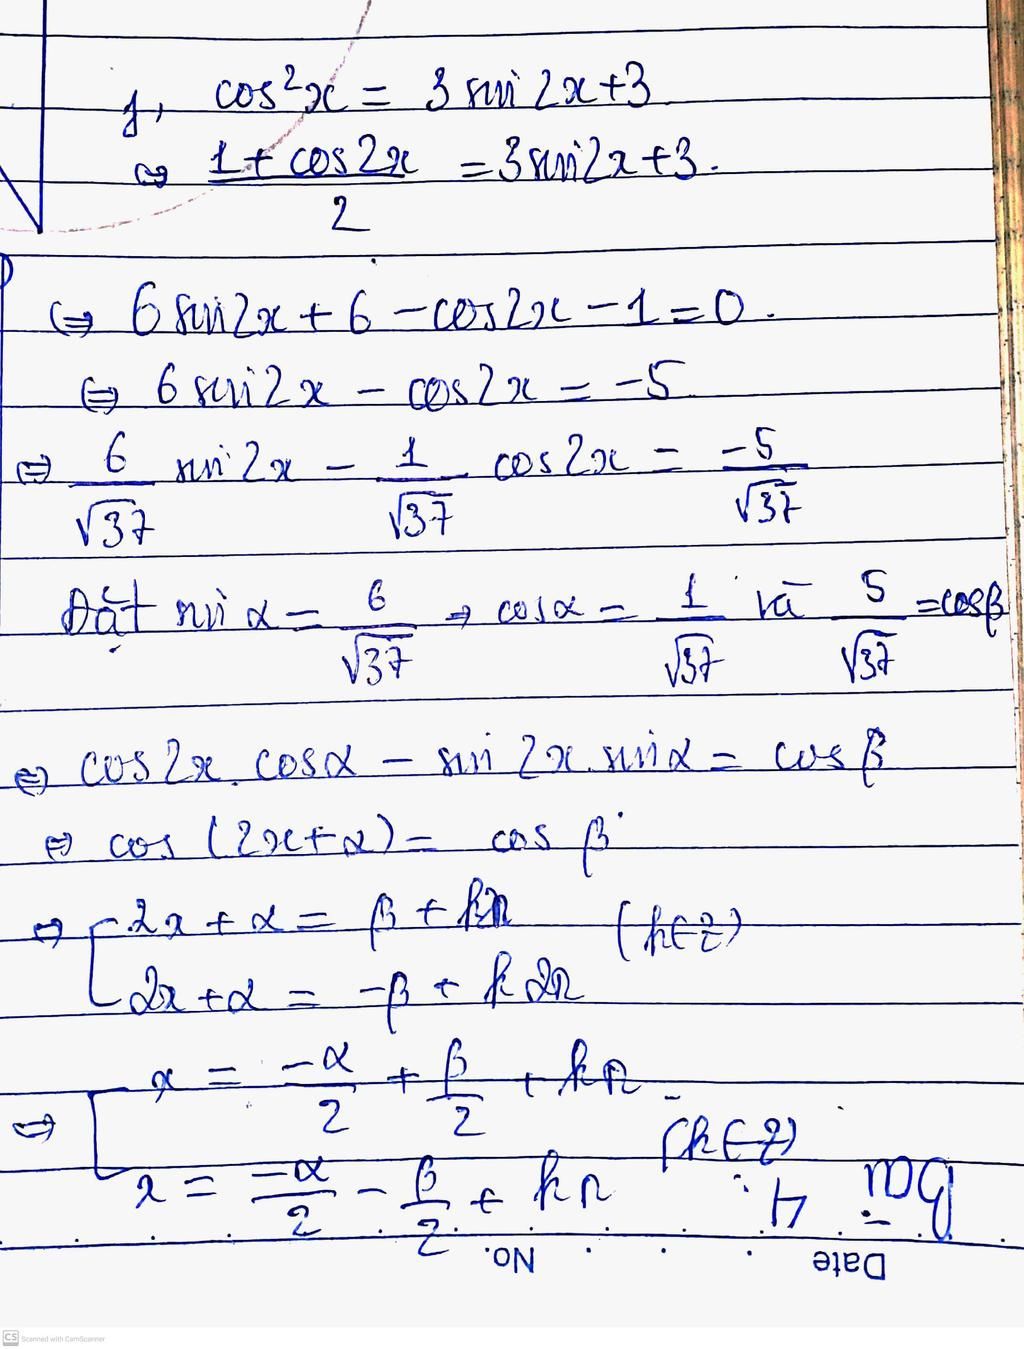 f, cos²x = 3 sin 2x + 3
⇔ (1 + cos2x)/2 = 3 sin 2x + 3.
⇔ 6 sin 2x + 6 - cos2x - 1 = 0.
⇔ 6 sin 2x - cos 2x = -5
⇔ 6/√37 sin 2x - 1/√37 cos 2x = -5/√37
Đặt sin α = 6/√37 ⇒ cos α = 1/√37 và 5/√37 = cos β
⇔ cos 2x. cos α - sin 2x. sin α = cos β
⇔ cos (2x + α) = cos β
⇔ [ 2x + α = β + k2π (k∈Z)
2x + α = -β + k2π
⇔ [ x = -α/2 + β/2 + kπ (k∈Z)
x = -α/2 - β/2 + kπ
Bài 4:
Date No.
CS Scanned with CamScanner